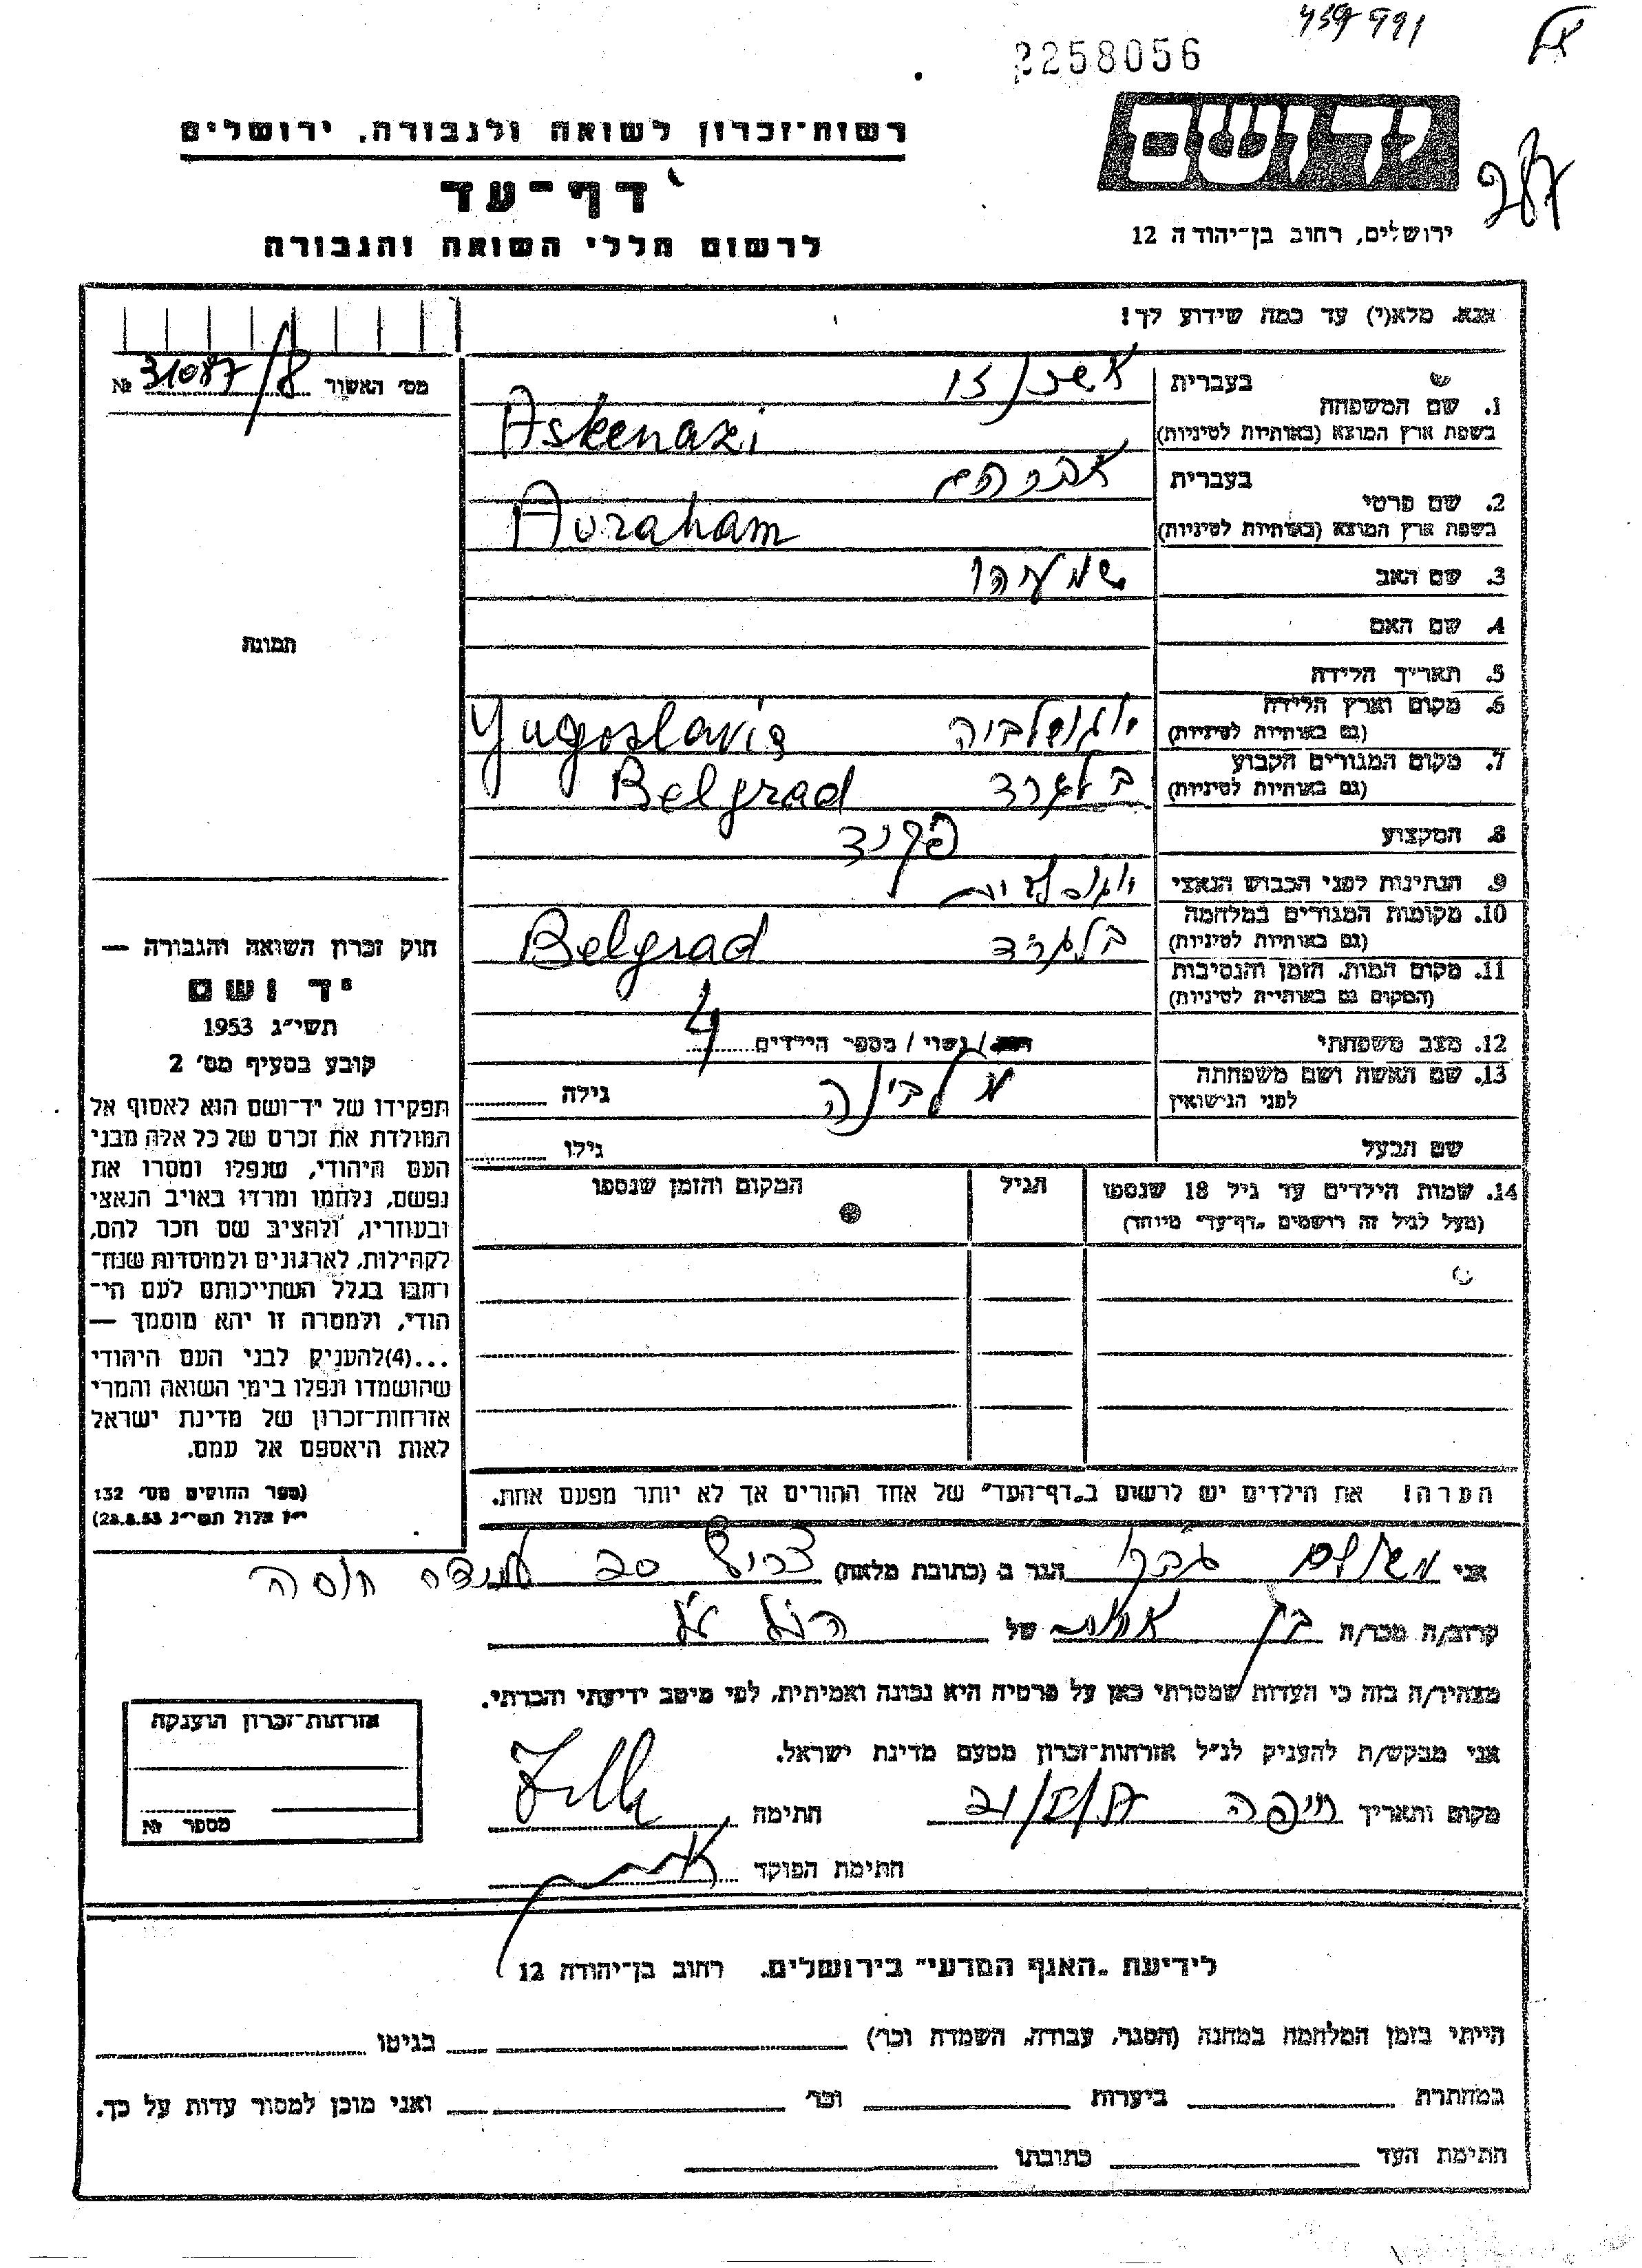 2258056
רשות־זכרון לשואה ולגבורה, ירושלים
דף־עד
לרשום חללי השואה והגבורה
יד ושם
ירושלים, רחוב בן־יהודה 12
287
אנא, מלא(י) עד כמה שידוע לך!
מס׳ האשור № 31087/8
1. שם המשפחה
בעברית אשכנזי
בשפת ארץ המוצא (באותיות לטיניות) Askenazi
2. שם פרטי
בעברית אברהם
בשפת ארץ המוצא (באותיות לטיניות) Avraham
3. שם האב שמעהו
4. שם האם
5. תאריך הלידה
6. מקום וארץ הלידה
(גם באותיות לטיניות) יוגוסלביה Yugoslavia
7. מקום המגורים הקבוע
(גם באותיות לטיניות) בלגרד Belgrad
8. המקצוע פקיד
9. הנתינות לפני הכבוש הנאצי
10. מקומות המגורים במלחמה
(גם באותיות לטיניות) בלגרד Belgrad
11. מקום המות, הזמן והנסיבות
(המקום גם באותיות לטיניות)
12. מצב משפחתי רווק / נשוי / מספר הילדים 4
13. שם האשה ושם משפחתה
לפני הנישואין מלבינה גילה
שם הבעל גילו
14. שמות הילדים עד גיל 18 שנספו
(מעל לגיל זה רושמים „דף־עד״ מיוחד)
הגיל
המקום והזמן שנספו
תמונה
חוק זכרון השואה והגבורה —
יד ושם
תשי״ג 1953
קובע בסעיף מס׳ 2
תפקידו של יד־ושם הוא לאסוף אל
המולדת את זכרם של כל אלה מבני
העם היהודי, שנפלו ומסרו את
נפשם, נלחמו ומרדו באויב הנאצי
ובעוזריו, ולהציב שם וזכר להם,
לקהילות, לארגונים ולמוסדות שנח־
רבו בגלל השתייכותם לעם הי־
הודי, ולמטרה זו יהא מוסמך —
...(4)להעניק לבני העם היהודי
שהושמדו ונפלו בימי השואה והמרי
אזרחות־זכרון של מדינת ישראל
לאות היאספם אל עמם.
(ספר החוקים מס׳ 132
י״ז אלול תשי״ג 28.8.53)
הערה! את הילדים יש לרשום ב„דף־העד״ של אחד ההורים אך לא יותר מפעם אחת.
אני משולם הגר ב (כתובת מלאה) צריף 20
קרוב/ה מכר/ה בן אחות של הנ״ל
מצהיר/ה בזה כי העדות שמסרתי כאן על פרטיה היא נכונה ואמיתית, לפי מיטב ידיעתי והכרתי.
אני מבקש/ת להעניק לנ״ל אזרחות־זכרון מטעם מדינת ישראל.
מקום ותאריך חיפה חתימה
חתימת הפוקד
אזרחות־זכרון הוענקה
מספר №
לידיעת „האגף המדעי״ בירושלים. רחוב בן־יהודה 12
הייתי בזמן המלחמה במחנה (הסגר, עבודה, השמדה וכו׳) בגיטו
במחתרת ביערות וכו׳ ואני מוכן למסור עדות על כך.
חתימת העד כתובתו